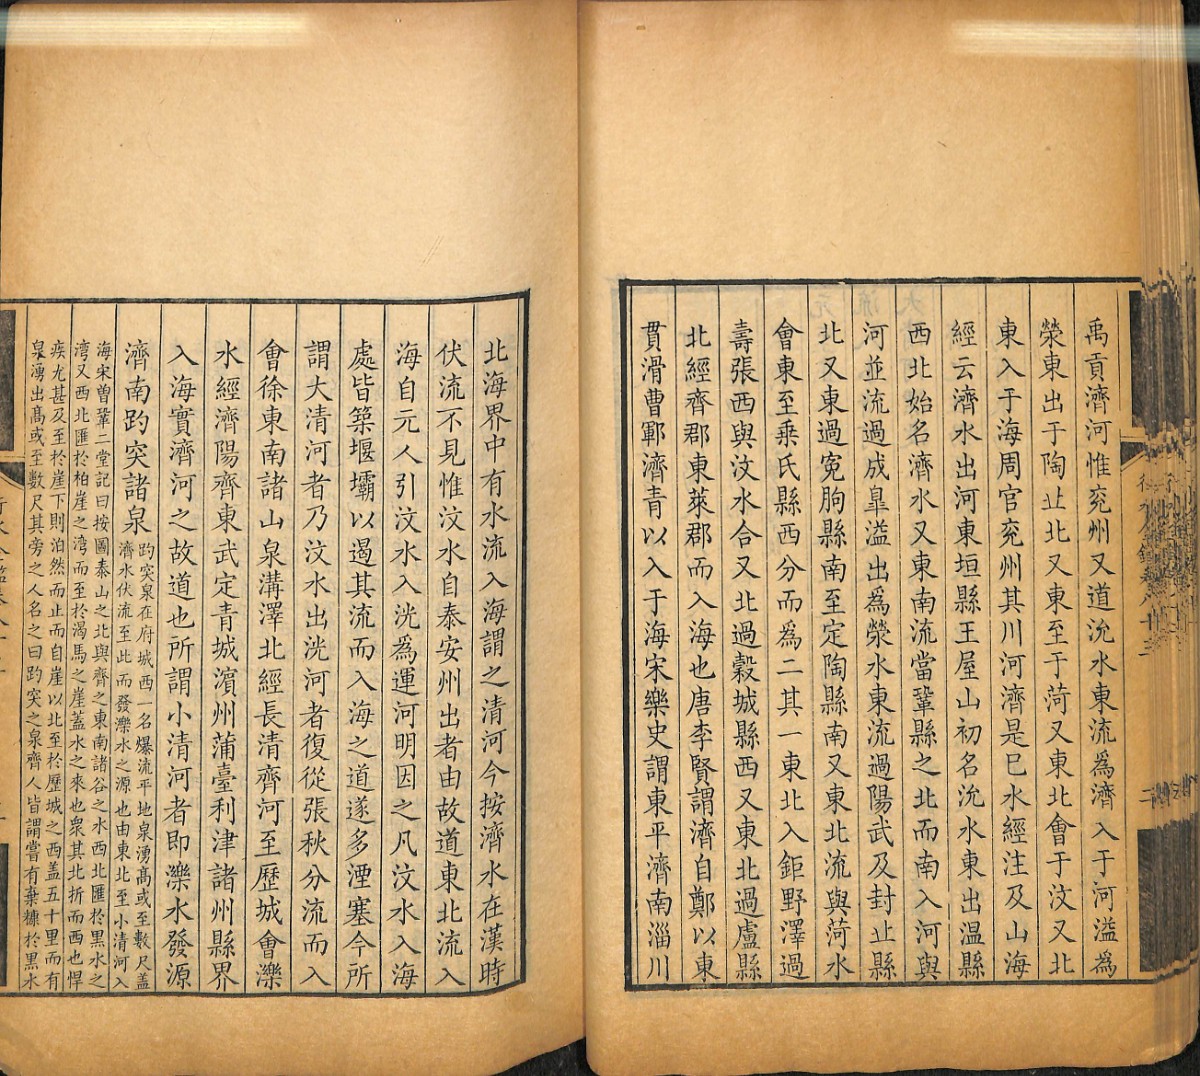 禹貢濟河惟兖州又道沇水東流為濟入于河溢為
滎東出于陶丘北又東至于菏又東北會于汶又北
東入于海周官兖州其川河濟是巳水經注及山海
經云濟水出河東垣縣王屋山初名沇水東出温縣
西北始名濟水又東南流當鞏縣之北而南入河與
河並流過成皐溢出為滎水東流過陽武及封丘縣
北又東過寃朐縣南至定陶縣南又東北流與菏水
會東至乗氏縣西分而為二其一東北入鉅野澤過
壽張西與汶水合又北過穀城縣西又東北過盧縣
北經齊郡東萊郡而入海也唐李賢謂濟自鄭以東
貫滑曹鄆濟青以入于海宋樂史謂東平濟南淄川
北海界中有水流入海謂之清河今按濟水在漢時
伏流不見惟汶水自泰安州出者由故道東北流入
海自元人引汶水入洸為運河明因之凡汶水入海
處皆築堰壩以遏其流而入海之道遂多湮塞今所
謂大清河者乃汶水出洸河者復從張秋分流而入
會徐東南諸山泉溝澤北經長清齊河至歷城會濼
水經濟陽齊東武定青城濵州蒲臺利津諸州縣界
入海實濟河之故道也所謂小清河者即濼水發源
濟南趵突諸泉
趵突泉在府城西一名爆流平地泉湧髙或至數尺盖
濟水伏流至此而發濼水之源也由東北至小清河入
海宋曽鞏二堂記曰按圖泰山之北與齊之東南諸谷之水西北匯於黒水之
湾又西北匯於柏崖之湾而至於渴馬之崖蓋水之來也衆其北折而西也悍
疾尤甚及至於崖下則泊然而止而自崖以北至於歷城之西盖五十里而有
泉湧出髙或至數尺其旁之人名之曰趵突之泉齊人皆謂嘗有棄糠於黒水